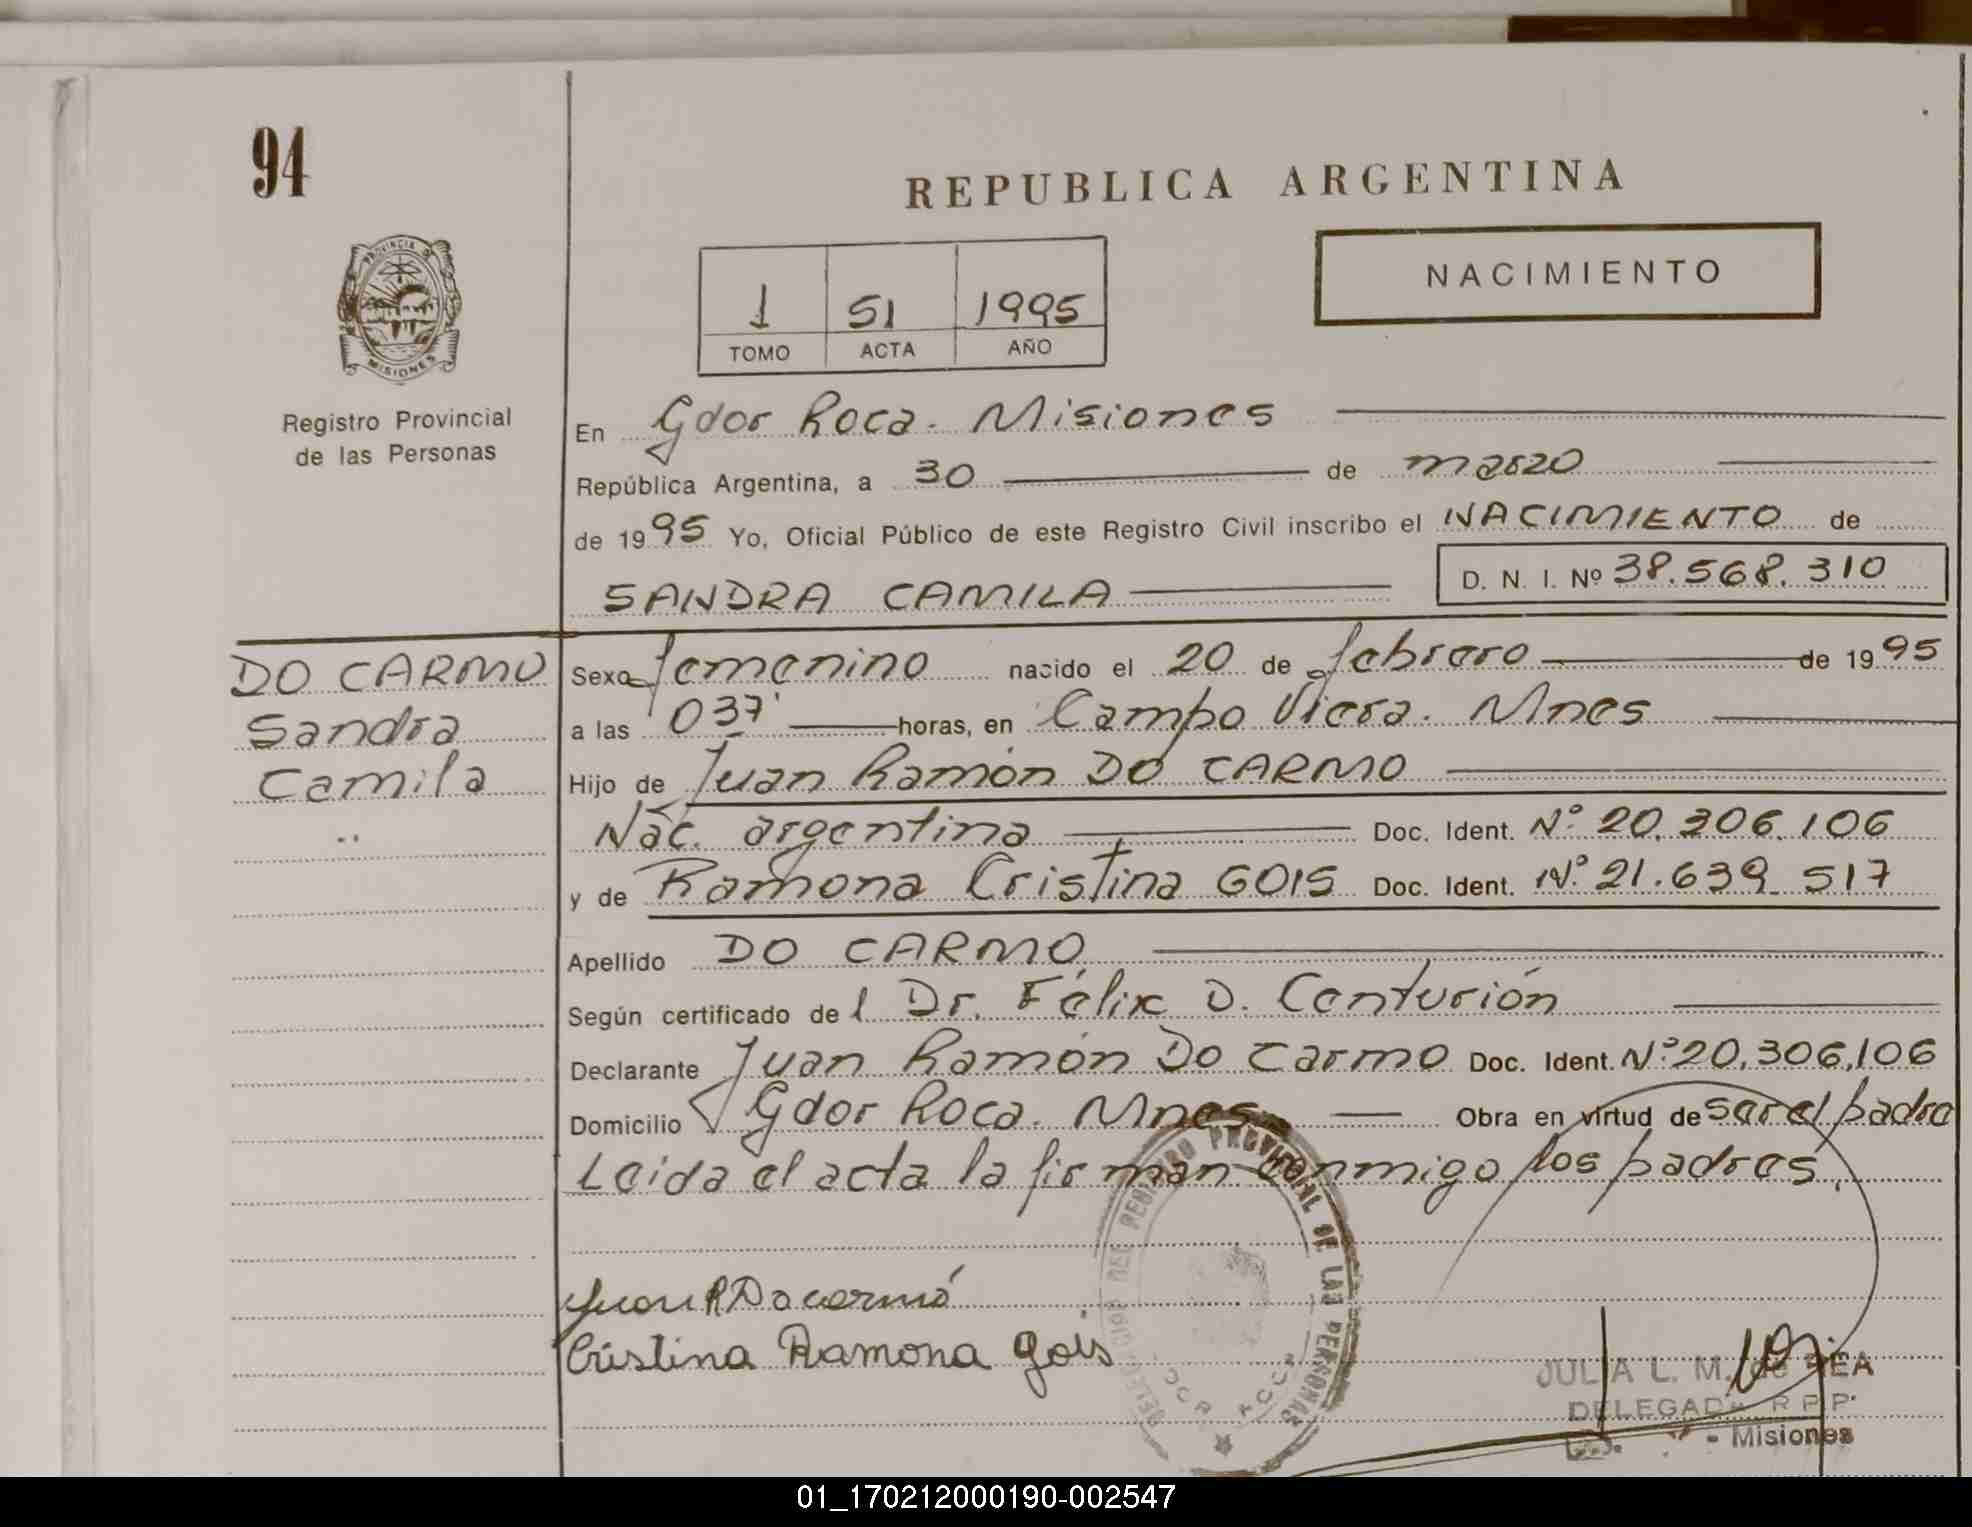 94
REPUBLICA ARGENTINA
PROVINCIA DE
MISIONES
NACIMIENTO
1 51 1995
TOMO ACTA AÑO
Registro Provincial
de las Personas
En Gdor Roca. Misiones
República Argentina, a 30 de marzo
de 1995 Yo, Oficial Público de este Registro Civil inscribo el NACIMIENTO de
SANDRA CAMILA D. N. I. Nº 38.568.310
DO CARMO
Sandra
Camila
Sexo femenino nacido el 20 de febrero de 1995
a las 037' horas, en Campo Viera. Mnes
Hijo de Juan Ramón DO CARMO
Nac. argentina Doc. Ident. Nº 20.306.106
y de Ramona Cristina GOIS Doc. Ident. Nº 21.639.517
Apellido DO CARMO
Según certificado del Dr. Félix D. Centurión
Declarante Juan Ramón Do Carmo Doc. Ident. Nº 20.306.106
Domicilio Gdor Roca. Mnes Obra en virtud de ser el padre
Leida el acta la firman conmigo los padres.
REGISTRO PROVINCIAL DE LAS PERSONAS
Juan R Do carmo
Cristina Ramona Gois
JULIA L. M. de REA
DELEGADA R P P
- Misiones
01_170212000190-002547